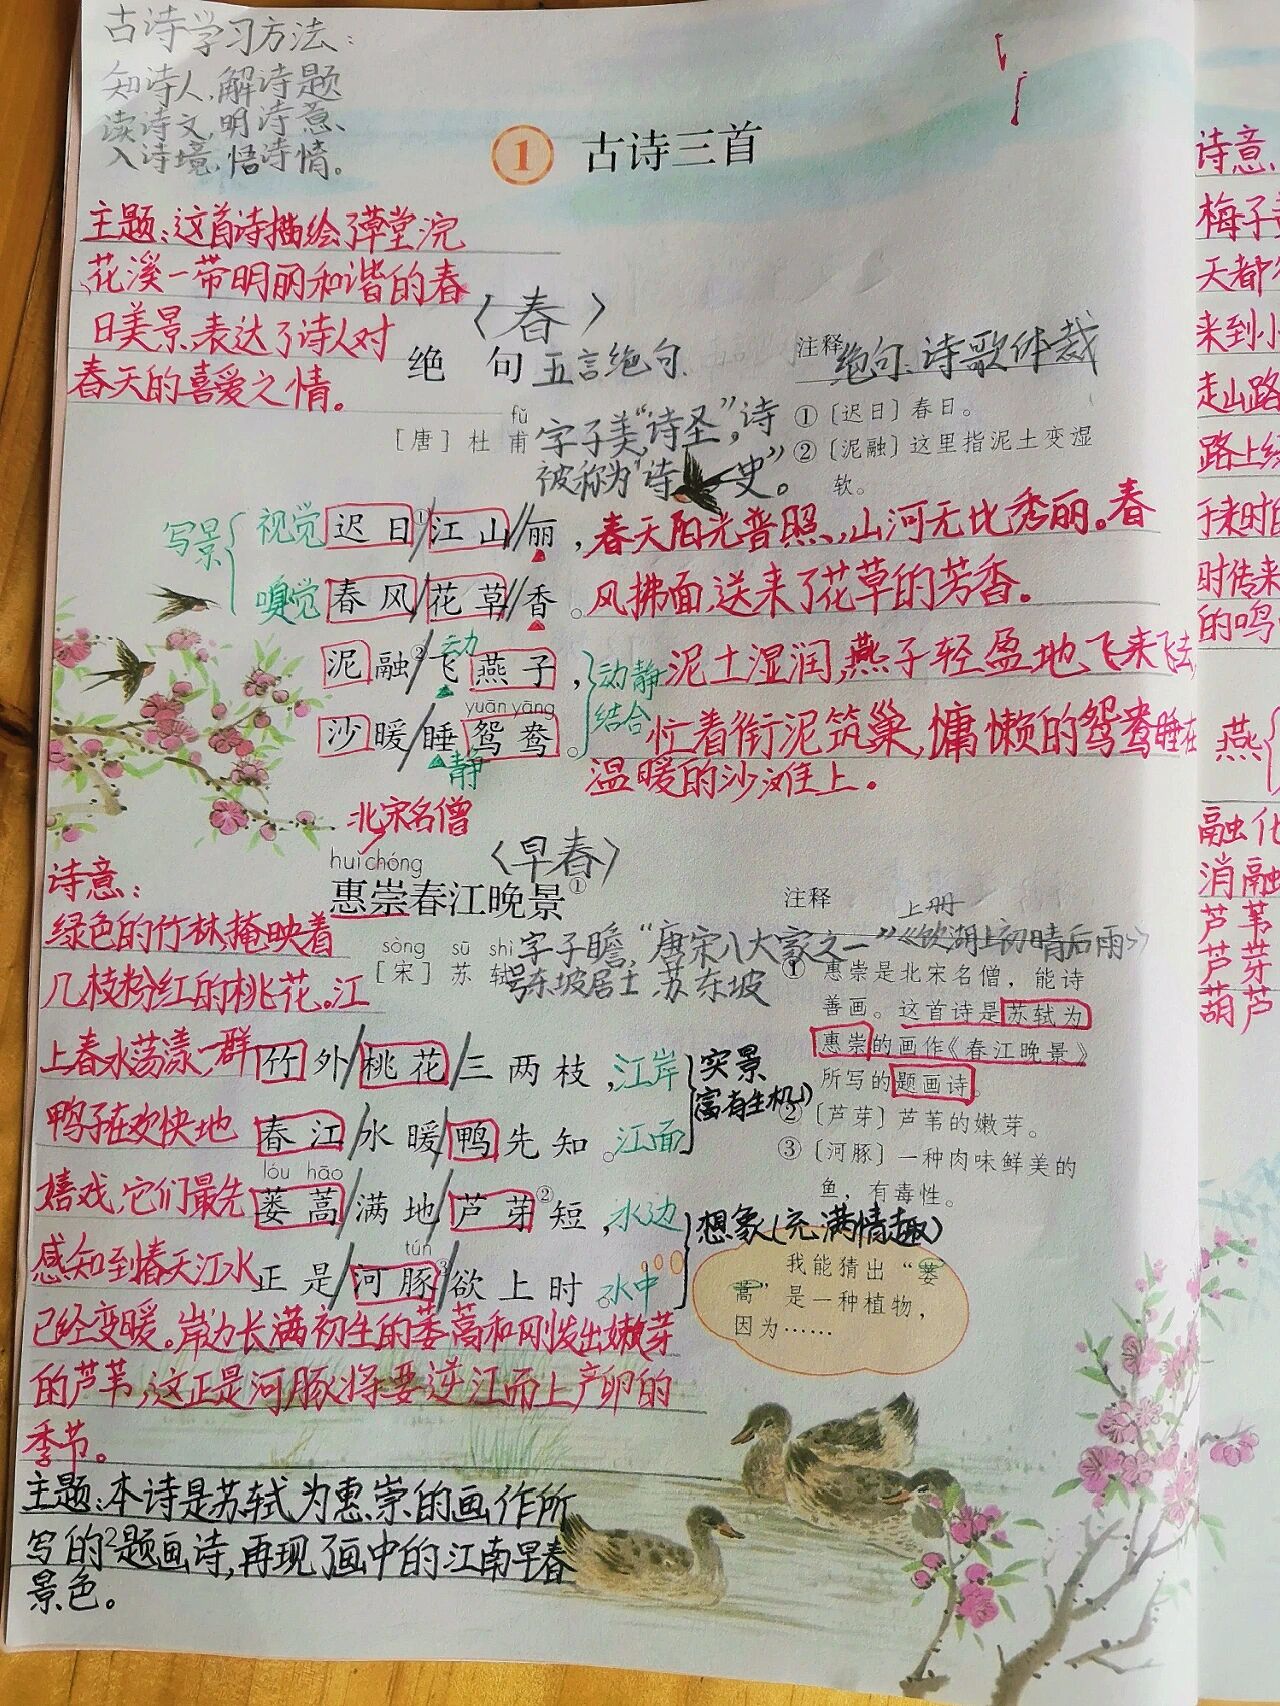 古诗学习方法：
知诗人，解诗题
读诗文，明诗意、
入诗境，悟诗情。
1 古诗三首
主题：这首诗描绘了草堂浣
花溪一带明丽和谐的春
日美景，表达了诗人对
春天的喜爱之情。
〈春〉
绝句 五言绝句
注释 绝句：诗歌体裁
fǔ
［唐］杜甫 字子美“诗圣”，诗
被称为“诗史”。
①〔迟日〕春日。
②〔泥融〕这里指泥土变湿
软。
写景
视觉 迟日①/江山//丽，春天阳光普照，山河无比秀丽。春
嗅觉 春风/花草//香。风拂面，送来了花草的芳香。
动
泥融②/飞燕子，动静 泥土湿润，燕子轻盈地飞来飞去，
yuān yāng
沙暖/睡鸳鸯。结合 忙着衔泥筑巢，慵懒的鸳鸯睡在
静
温暖的沙滩上。
北宋名僧
huì chóng
〈早春〉
惠崇春江晚景①
注释
上册
sòng sū shì
［宋］苏轼 字子瞻，“唐宋八大家之一”《饮湖上初晴后雨》
号东坡居士 苏东坡
① 惠崇是北宋名僧，能诗
善画。这首诗是苏轼为
惠崇的画作《春江晚景》
所写的题画诗。
②〔芦芽〕芦苇的嫩芽。
③〔河豚〕一种肉味鲜美的
鱼，有毒性。
诗意：
绿色的竹林掩映着
几枝粉红的桃花。江
上春水荡漾，一群
鸭子在欢快地
嬉戏，它们最先
感知到春天江水
已经变暖。岸边长满初生的蒌蒿和刚发出嫩芽
的芦苇，这正是河豚将要逆江而上产卵的
季节。
竹外/桃花/三两枝，江岸
春江/水暖/鸭先知。江面
实景
富有生机
lóu hāo
蒌蒿/满地/芦芽②短，水边
tún
正是/河豚③/欲上时。水中
想象（充满情趣）
我能猜出“蒌
蒿”是一种植物，
因为……
主题：本诗是苏轼为惠崇的画作所
写的题画诗，再现了画中的江南早春
景色。
2
诗意
梅子
天都
来到小
走山路
路上绿
于来时的
时传来
的鸣
燕
融化
消融
芦苇
芦芽
葫芦